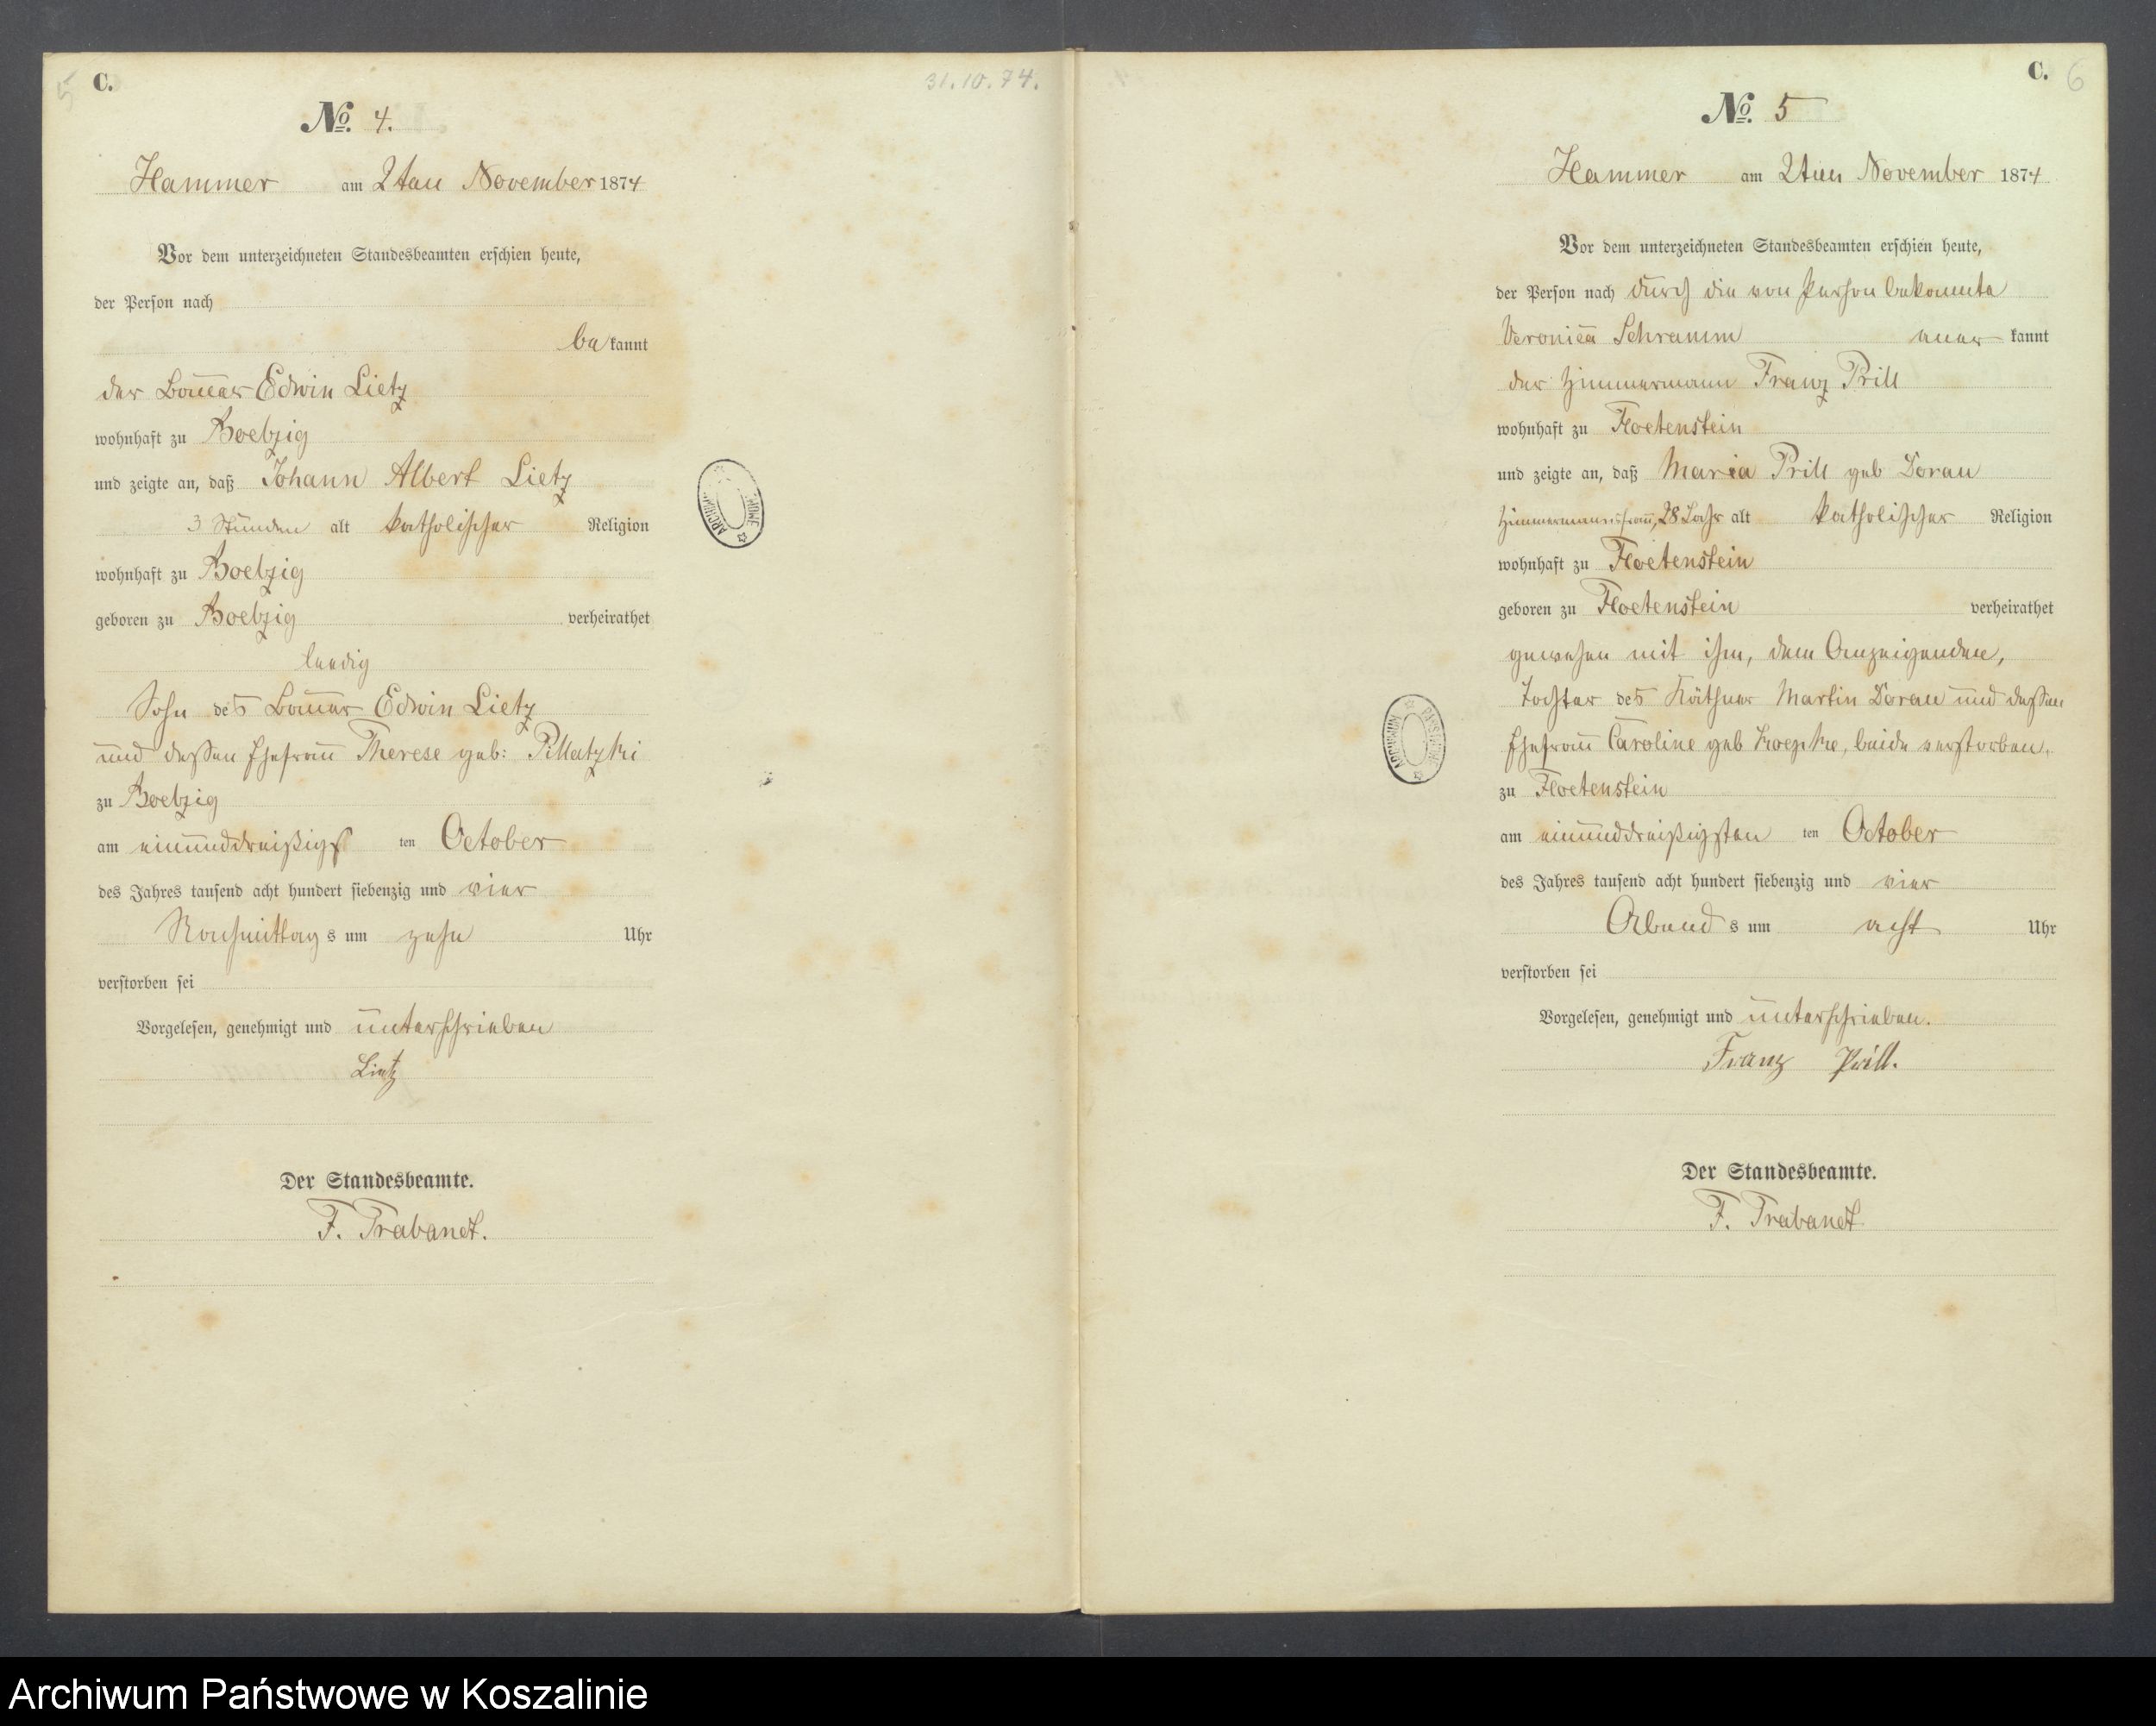 5
C.
31.10.74.
No. 4.
Hammer am 2ten November 1874
Vor dem unterzeichneten Standesbeamten erschien heute,
der Person nach
bekannt
der Bauer Edwin Lietz
wohnhaft zu Boelzig
und zeigte an, daß Johann Albert Lietz
3 Stunden alt katholischer Religion
wohnhaft zu Boelzig
geboren zu Boelzig verheirathet
leedig
Sohn des Bauer Edwin Lietz
und dessen Ehefrau Therese geb: Pillatzki
zu Boelzig
am einunddreißigst ten October
des Jahres tausend acht hundert siebenzig und vier
Nachmittags um zehn Uhr
verstorben sei
Vorgelesen, genehmigt und unterschrieben
Lietz
Der Standesbeamte.
F. Trabandt.
ARCHIWUM
C.
6
No. 5
Hammer am 2ten November 1874
Vor dem unterzeichneten Standesbeamten erschien heute,
der Person nach durch die von Person bekannte
Veronica Schramm anerkannt
der Zimmermann Franz Prill
wohnhaft zu Floetenstein
und zeigte an, daß Maria Prill geb Doran
Zimmermannsfrau, 28 Jahr alt katholischer Religion
wohnhaft zu Floetenstein
geboren zu Floetenstein verheirathet
gewesen mit ihm, dem Anzeigenden,
Tochter des Käthner Martin Doran und dessen
Ehefrau Caroline geb beide verstorben.
zu Floetenstein
am einunddreißigsten ten October
des Jahres tausend acht hundert siebenzig und vier
Abends um acht Uhr
verstorben sei
Vorgelesen, genehmigt und unterschrieben.
Franz Prill.
Der Standesbeamte.
F. Trabandt
ARCHIWUM PAŃSTWOWE
Archiwum Państwowe w Koszalinie